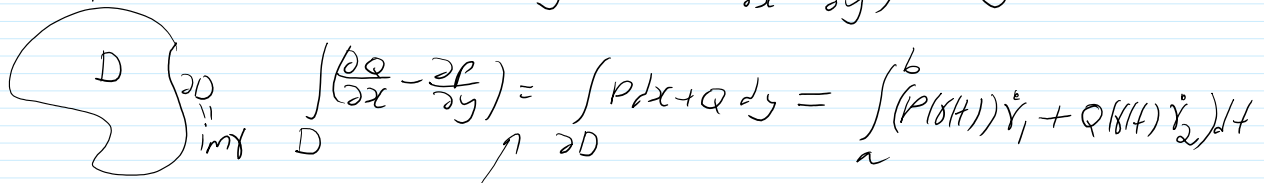 D ∂D = im γ ∫_D (∂Q/∂x − ∂P/∂y) = ∫_∂D P dx + Q dy = ∫_a^b (P(γ(t)) γ̇₁ + Q(γ(t) γ̇₂) dt